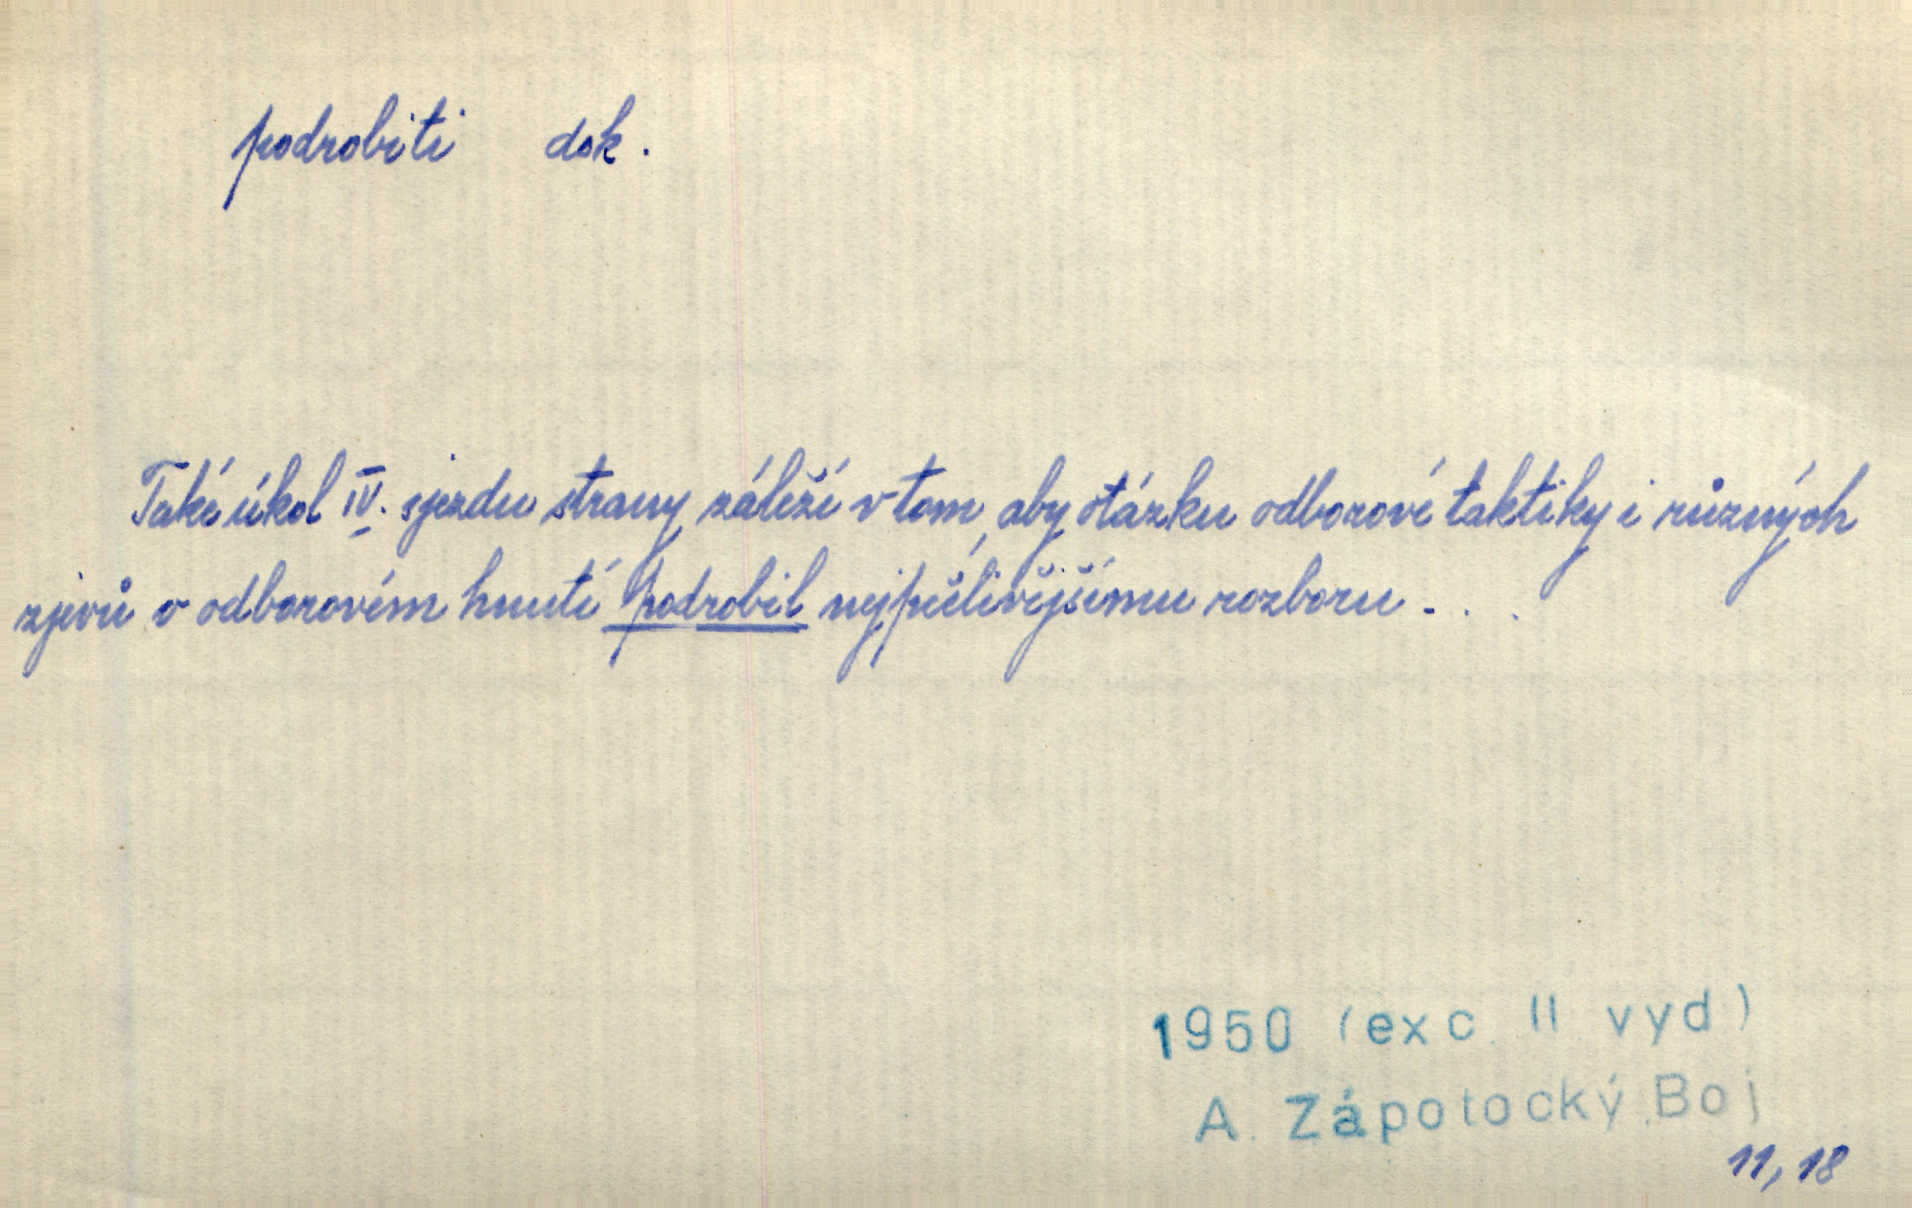 podrobiti dok.
Také úkol IV. sjezdu strany záleží v tom, aby otázku odborové taktiky i různých
zjevů v odborovém hnutí podrobil nejpečlivějšímu rozboru . . .
1950 (exc. II vyd)
A. Zápotocký, Boj
11, 18